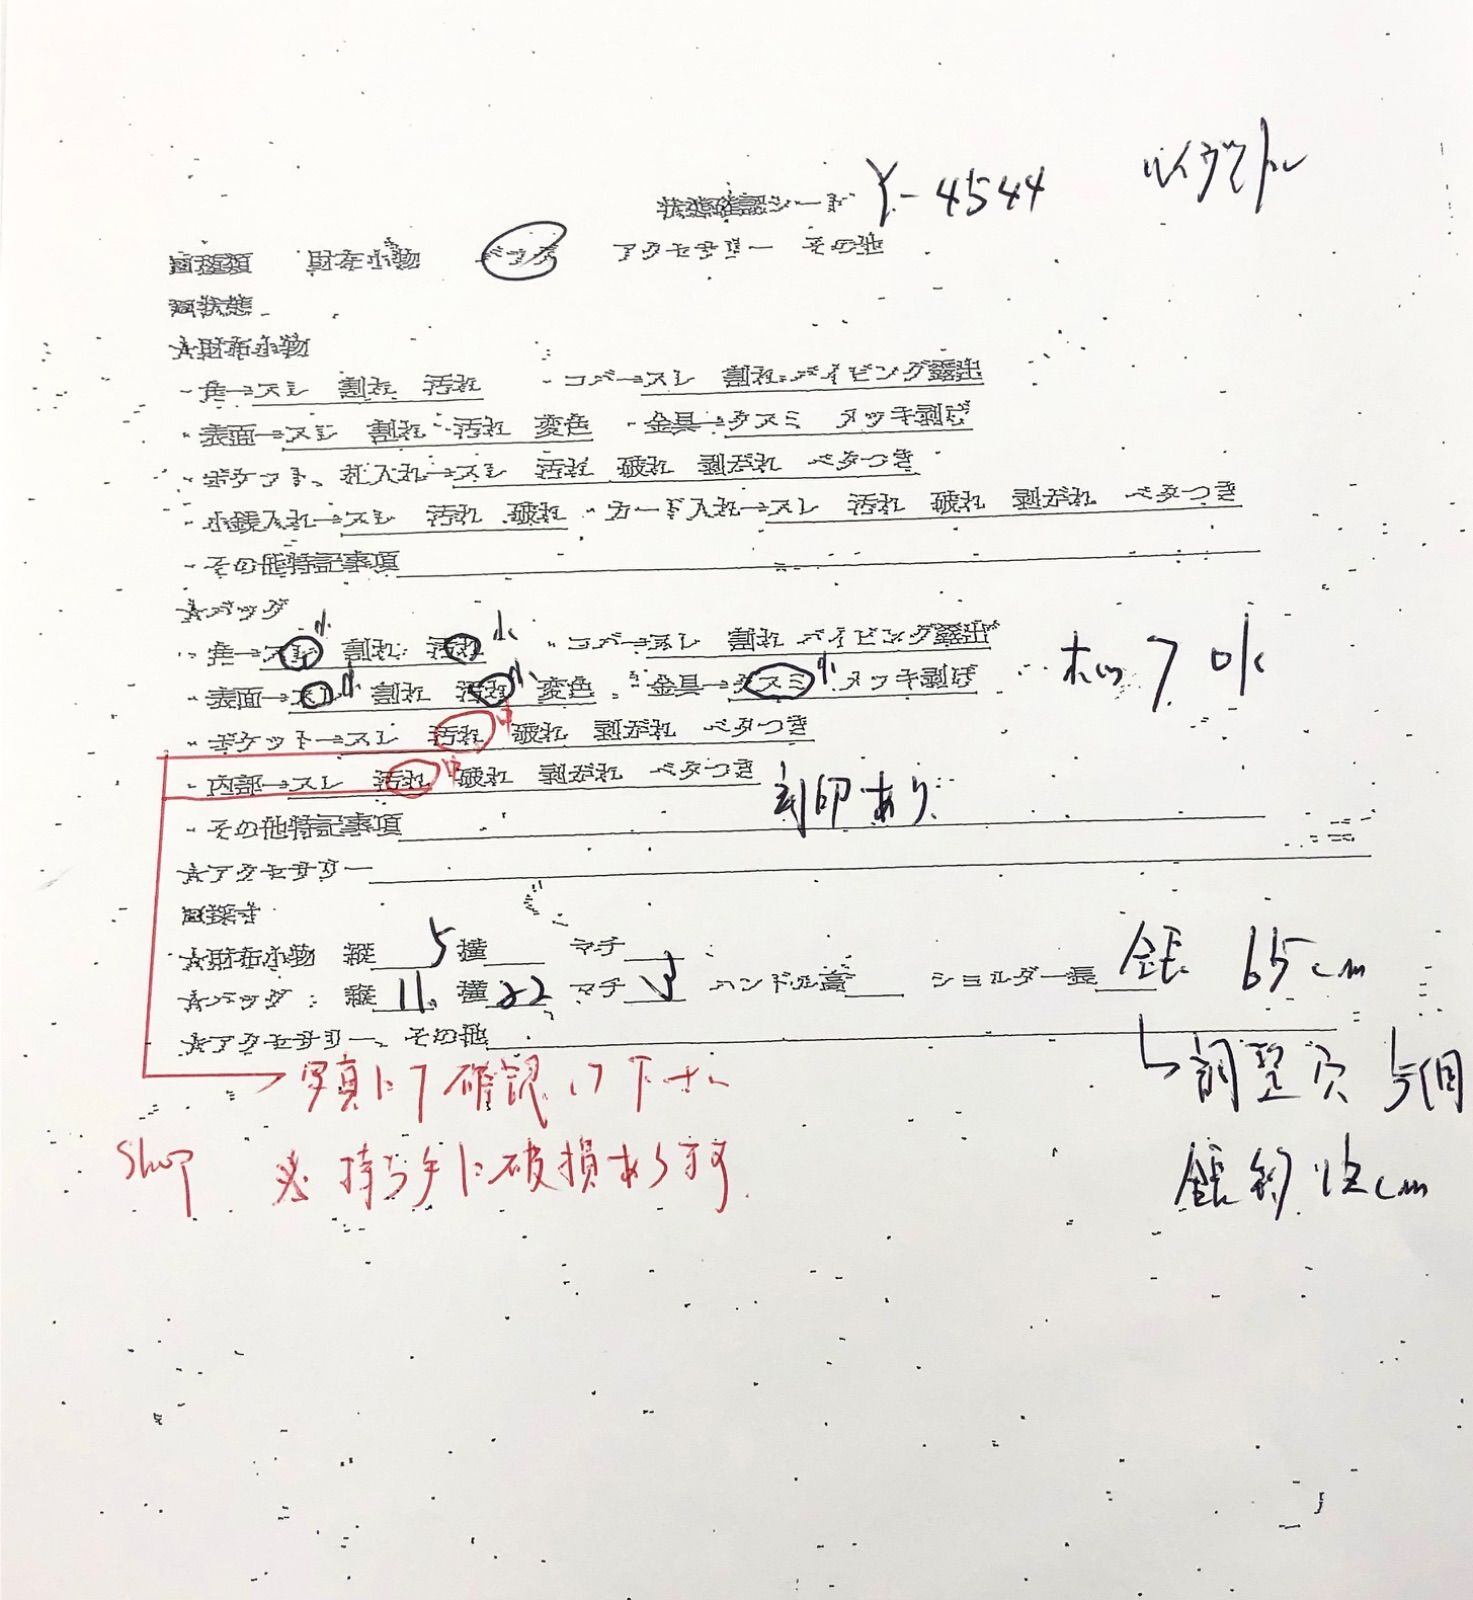 状態確認シート Y-4544 ルイヴィトン
□種類 財布小物 バッグ アクセサリー その他
□状態
☆財布小物
・角→スレ 割れ 汚れ ・コバ→スレ 割れ パイピング露出
・表面→スレ 割れ 汚れ 変色 ・金具→クスミ メッキ剥げ
・ポケット、札入れ→スレ 汚れ 破れ 剥がれ ベタつき
・小銭入れ→スレ 汚れ 破れ ・カード入れ→スレ 汚れ 破れ 剥がれ ベタつき
・その他特記事項
☆バッグ
・角→スレ小 割れ 汚れ小 ・コバ→スレ 割れ パイピング露出
・表面→スレ小 割れ 汚れ小 変色 ・金具→クスミ小 メッキ剥げ ホック OK
・ポケット→スレ 汚れ中 破れ 剥がれ ベタつき
・内部→スレ 汚れ中 破れ 剥がれ ベタつき
刻印あり
・その他特記事項
☆アクセサリー
□採寸
☆財布小物 縦 5 横 マチ
☆バッグ: 縦 11 横 22 マチ 3 ハンドル高 ショルダー長 全長 65cm
☆アクセサリー、その他
→写真にて確認して下さい
調整穴 5個
Shop ※持ち手に破損あります
全長約 12cm